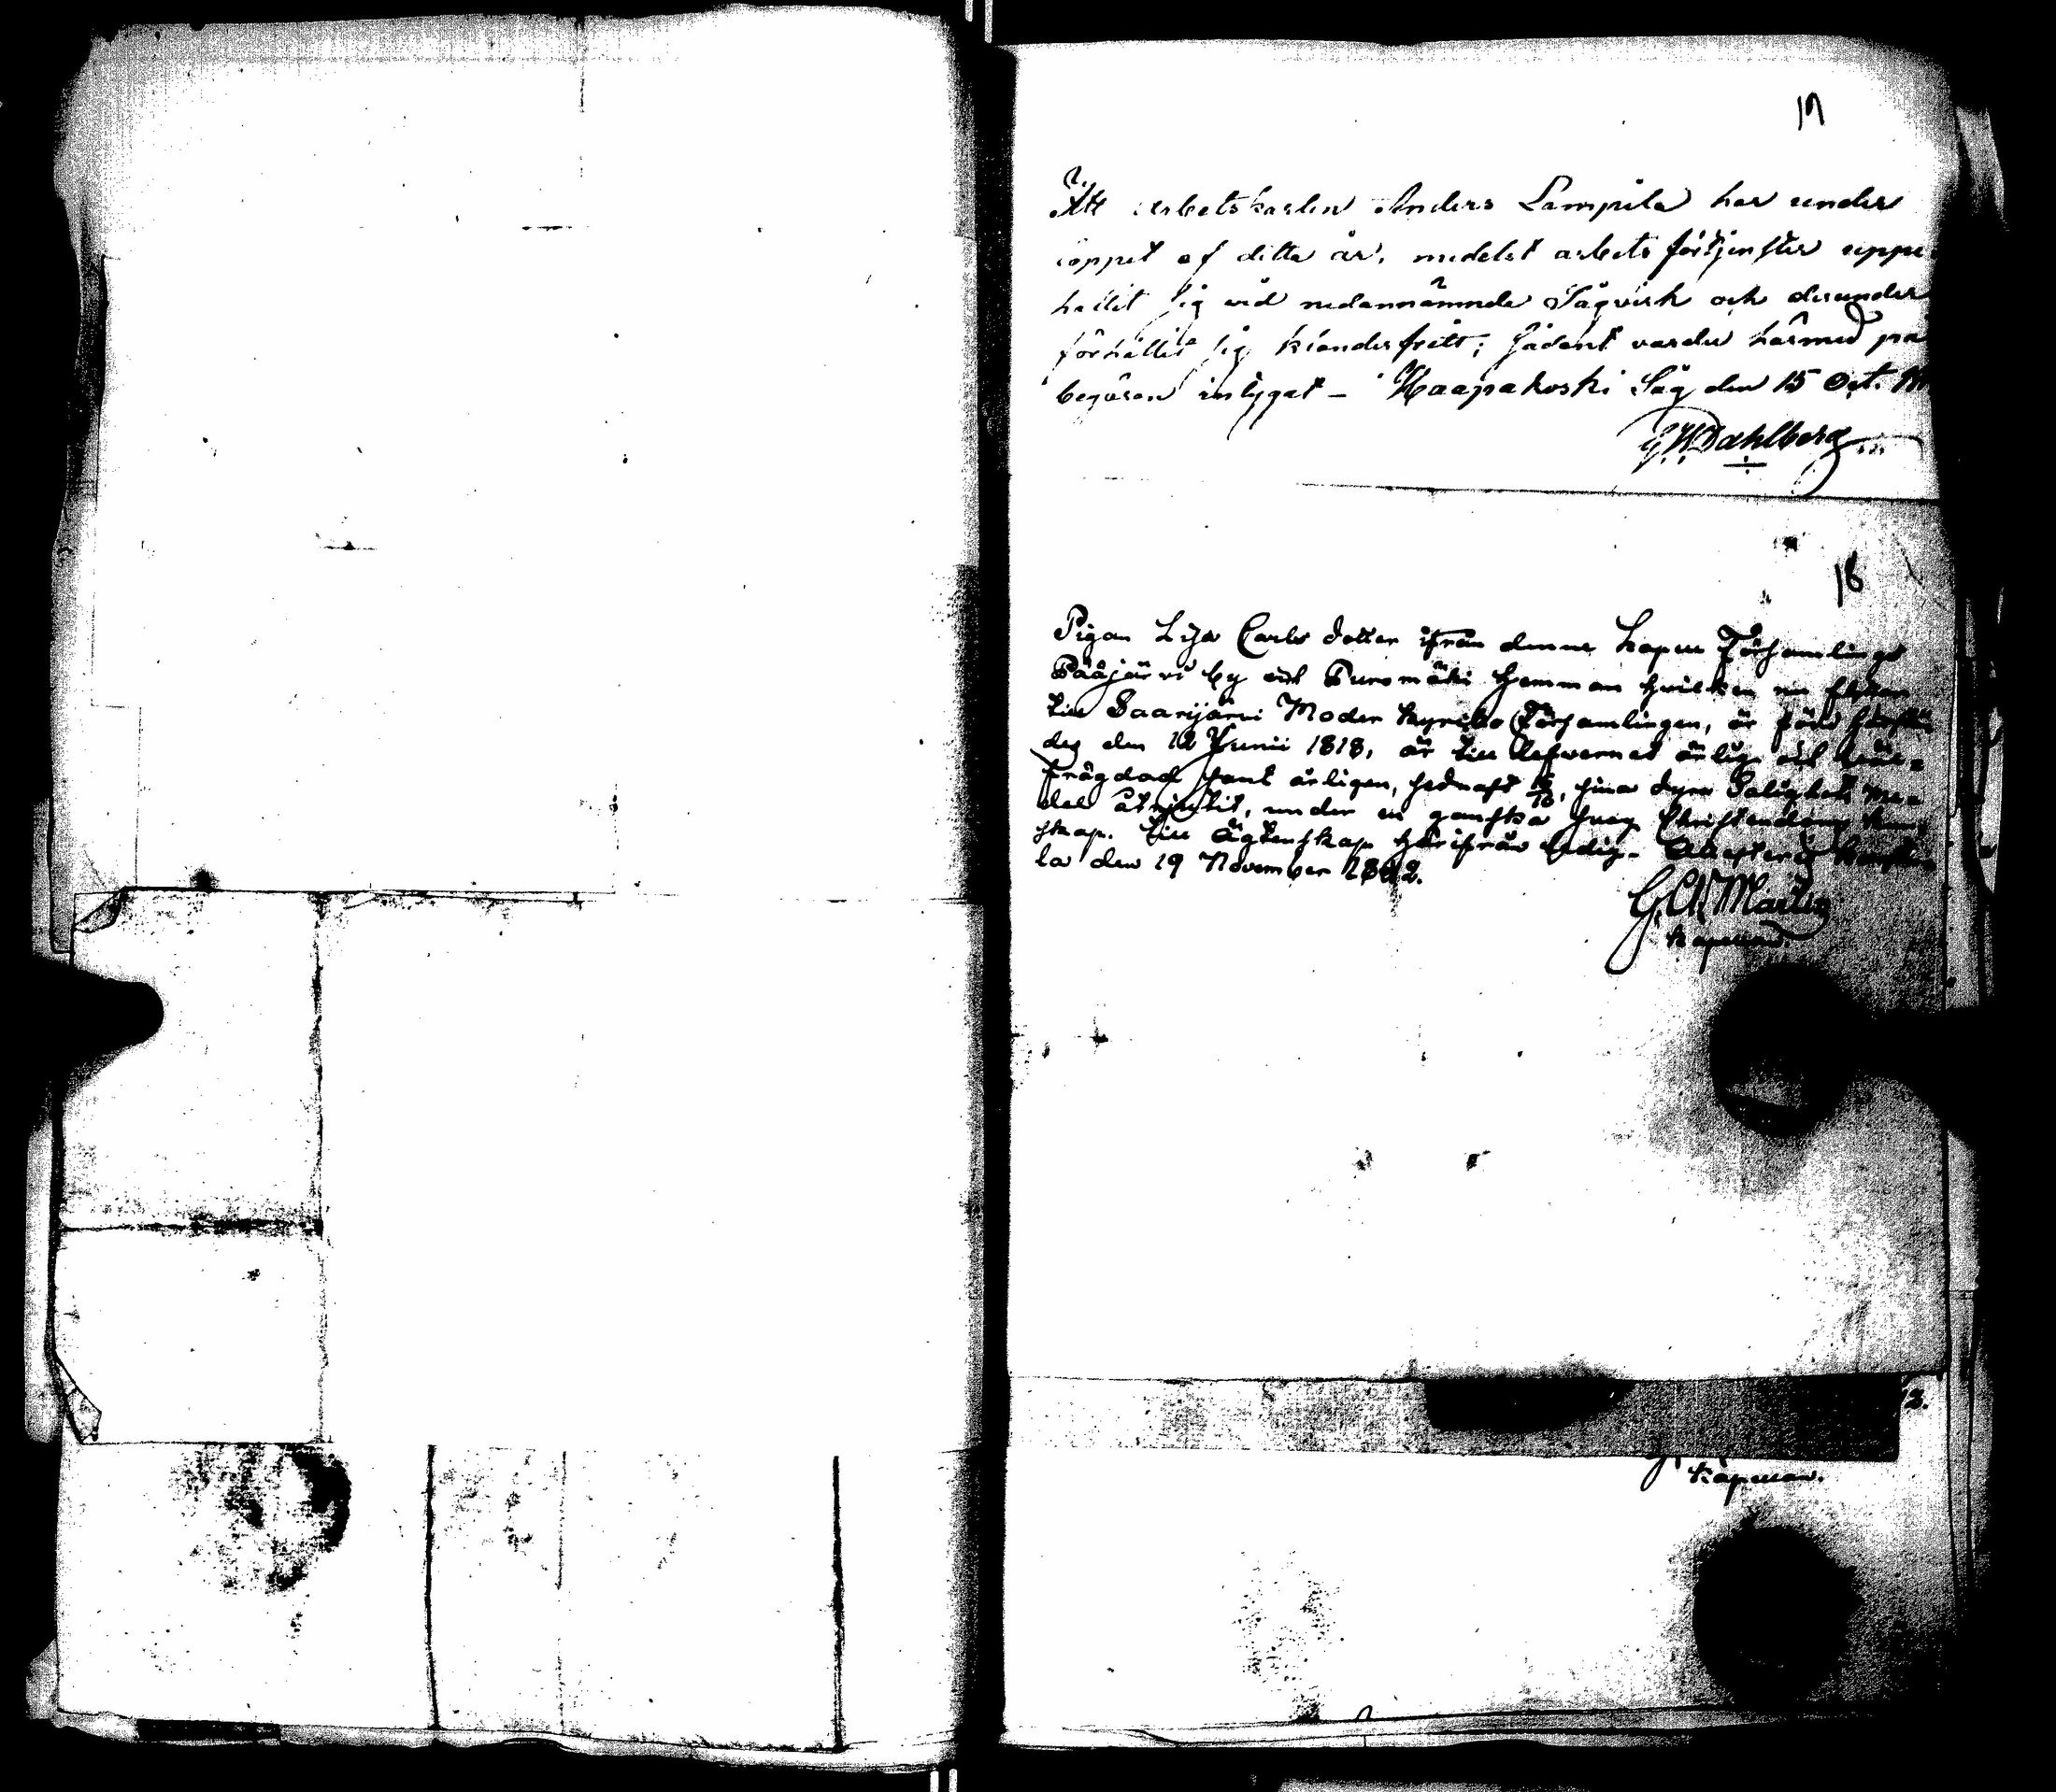 17
Att arbetskarlen Anders Lampila har under
loppet af detta år, medelst arbets förtjenster uppe
hållit sig vid nedannämnde Sågverk och derunder
förhållit sig klanderfritt; sådant varder härmed på
begäran intygat – Haapakoski Såg den 15 Oct.
G. W. Dahlberg
18
Pigan Lisa Carls dotter ifrån denne Capell Församlings
Pääjärvi by och Puromäki Hemman hvilken nu flyttar
till Saarijärvi Moder Kyrko Församlingen, är född
den 12 Junii 1818, är till lefvernet ärlig och
frägdad samt årligen, sednast, sina dyra Salighets me
del åtnjutit, under en ganska svag Christendoms kun
skap. till Ägtenskap härifrån ledig. Attesterar
la den 19 November 1842.
Kapellan.
Kapellan.